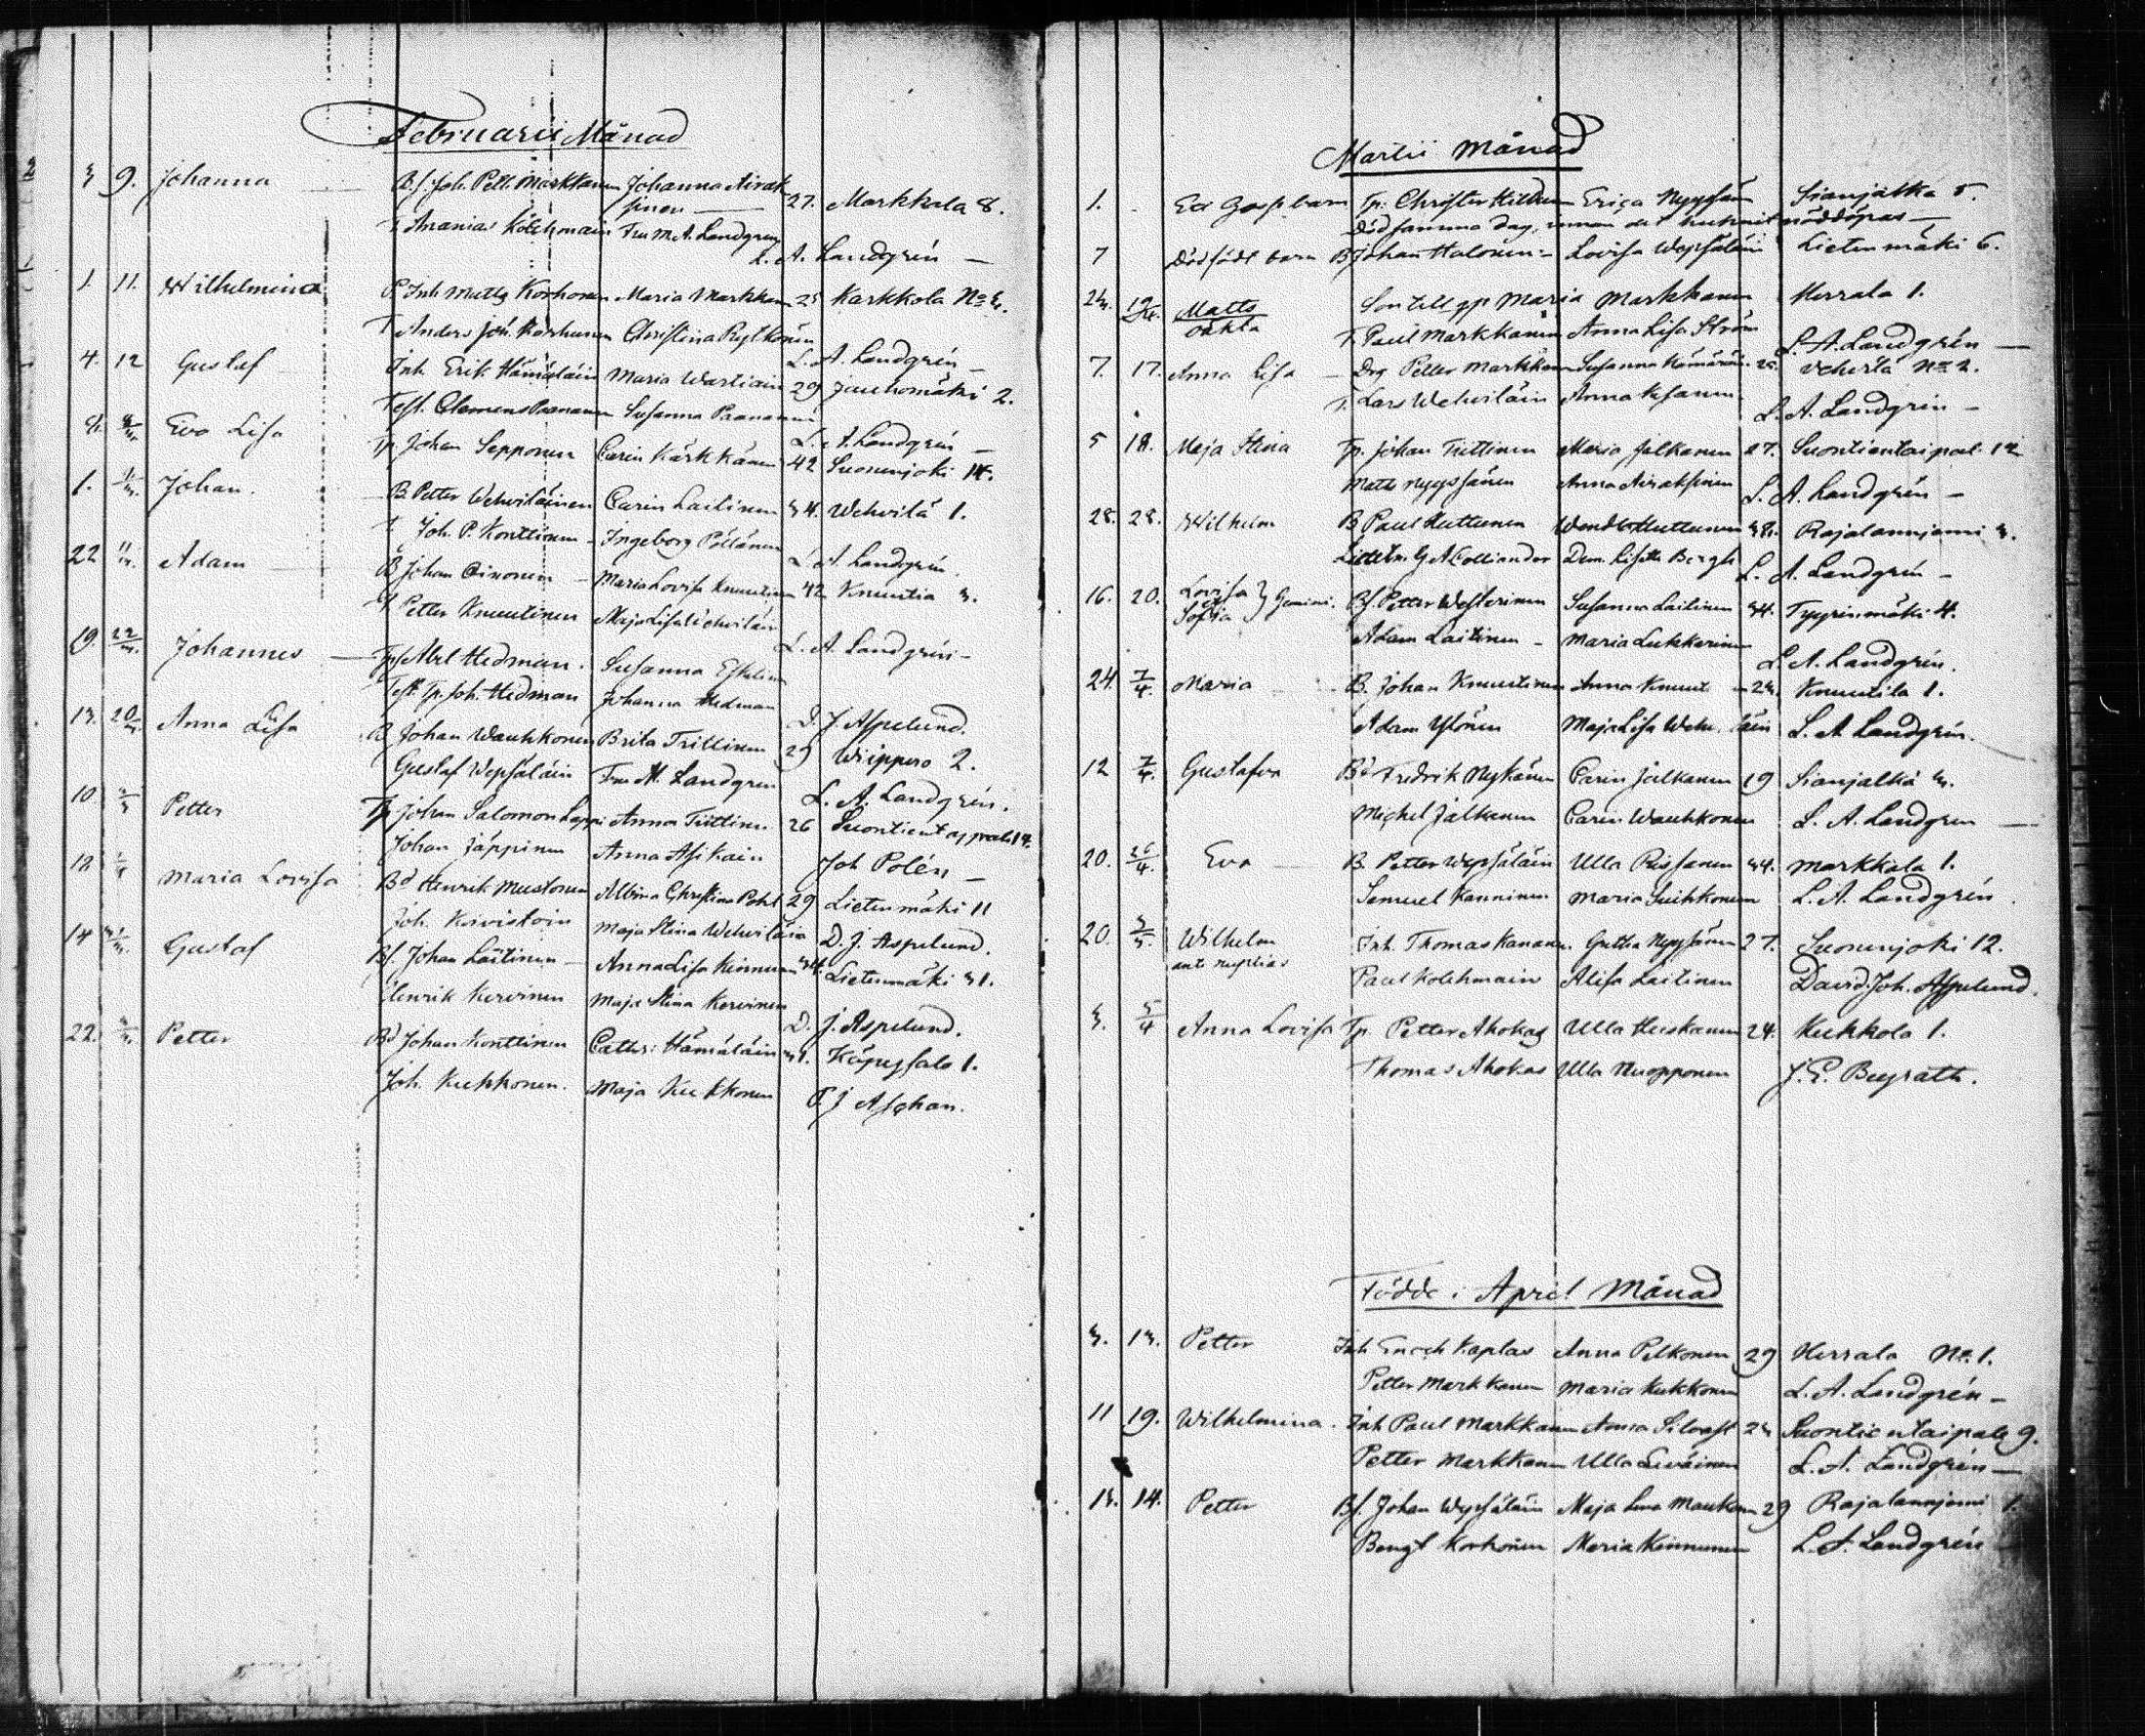 Februarii Månad
3 9. Johanna B.f. Joh. Pett. Markkanen Johanna Airak
sinen 27. Markkala 8.
T. Ananias Kolehmain Fru M. A. Landgren
L. A. Landgrén
1. 11. Wilhelmina Inh. Matts Korhonen Maria Markkan 25 Karkkola No 3.
T Anders Joh. Korhonen Christina Rytkönen
L. A. Landgrén
4. 12 Gustaf Inh. Erik Hämäläin Maria Wartiain 29 Jauhomäki 2.
Test. Clemens Paananen Susanna Paananen
L. A. Landgrén
Eva Lisa Tp. Johan Sepponen Carin Kärkkänen 42 Suonenjoki 14.
1. Johan. B. Petter Wehviläinen Carin Laitinen 34. Wehvilä 1.
T. Joh. P. Konttinen Ingeborg Pöllänen
L. A. Landgrén.
22 Adam B Johan Oinonen Maria Lovisa Knuutinen 42 Knuutila 3.
T Petter Knuutinen Maja Lisa Wehviläin
L. A. Landgrén
19. 22/3. Johannes Tp. Abel Hedman. Susanna Eskelin
Test. Tp. Joh. Hedman Johanna Hedman
D. J. Aspelund.
13. 20/3. Anna Lisa B Johan Wauhkonen Brita Tiittinen 29 Wiippero 2.
Gustaf Wepsäläin Fru M. Landgren
L. A. Landgrén.
10 Petter Tp Johan Salomon Lappi Anna Tiittinen 26 Suontientaipale 14.
Johan Jäppinen Anna Asikain
Joh Polén
12. Maria Lovisa Bd Henrik Mustonen Albina Christina Pohl 29 Lietenmäki 11
Joh. Kovistoin Maja Stina Wehviläin
D. J. Aspelund.
14 Gustaf Bf. Johan Laitinen Anna Lisa Kinnunen 34. Lietenmäki 31.
Henrik Kervinen Maja Stina Kervinen
D. J. Aspelund.
22. Petter Bd Johan Konttinen Cathr: Hämäläin 31. Käpysalo 1.
Joh. Kukkonen. Maja Kukkonen
F. J Aschan.
Martii Månad
1. Ett Gossebarn Tp. Christer Hilden Erica Nyyssön Sianjalka 5.
Död samma dag, innan det hunnit nöddöpas
7 Dödfödt barn B Johan Halonen Lovisa Wepsäläin Lietenmäki 6.
24. 12/4. Matts Son till pp Maria Markkanen Herrala 1.
oäkta T. Paul Markkanen Anna Lisa Ström
L. A. Landgrén
7. 17. Anna Lisa Drg Petter Markkanen Susanna Hämäläin 25. Vehvilä No 2.
T. Lars Wehviläin Anna Kosanen
L. A. Landgrén
5 18. Maja Stina Tp. Johan Tiittinen Maria Jalkanen 27. Suontientaipal. 12
Matts Nyyssönen Anna Airaksinen
L. A. Landgrén
28. 28. Wilhelm B Paul Huttunen Wendla Huttunen 38. Rajalanniemi 3.
Lieutn. G A Colliander Dem. Lisette Bergh
L. A. Landgrén
16. 20. Lovisa } Gemini. Bf. Petter Westerinen Susanna Laitinen 34. Tyyrinmäki 4.
Sofia
Adam Laitinen Maria Lukkarinen
L. A. Landgrén.
24. 7/4. Maria B. Johan Knuutinen Anna Knuut 23. Knuutila 1.
Adam Ylönen Maja Lisa Wehviläin L. A. Landgrén.
12 7/4. Gustafva Bd Fredrik Nykänen Carin Jalkanen 19 Sianjalka 3.
Michel Jalkanen Carin Wauhkonen L. A. Landgren
20. 26/4. Eva B. Petter Wepsäläin Ulla Rissanen 34. Markkala 1.
Samuel Kanninen Maria Suihkonen L. A. Landgrén
20. 3/5. Wilhelm Inh. Thomas Kananen. Gretha Nyyssönen 27. Suonenjoki 12.
ante nuptias Paul Kolehmain Alisa Laitinen David Joh. Aspelund.
3. 5/4 Anna Lovisa Tp. Petter Ahokas Ulla Huiskanen 24. Kukkola 1.
Thomas Ahokas Ulla Nuopponen J. E. Bergrath.
Födde i April Månad
3. 13. Petter Inh Enoch Kaplas Anna Pelkonen 29 Herrala No 1.
Petter Markkanen Maria Kukkonen L. A. Landgrén
11 19. Wilhelmina. Inh Paul Markkanen Anna Silvast 23 Suontientaipale 9.
Petter Markkanen Ulla Leväinen L. A. Landgrén
13. 14. Petter Bf. Johan Wepsäläin Maja Lena Mankanen 29 Rajalanniemi 1.
Bengt Korhonen Maria Kinnunen L. A. Landgrén